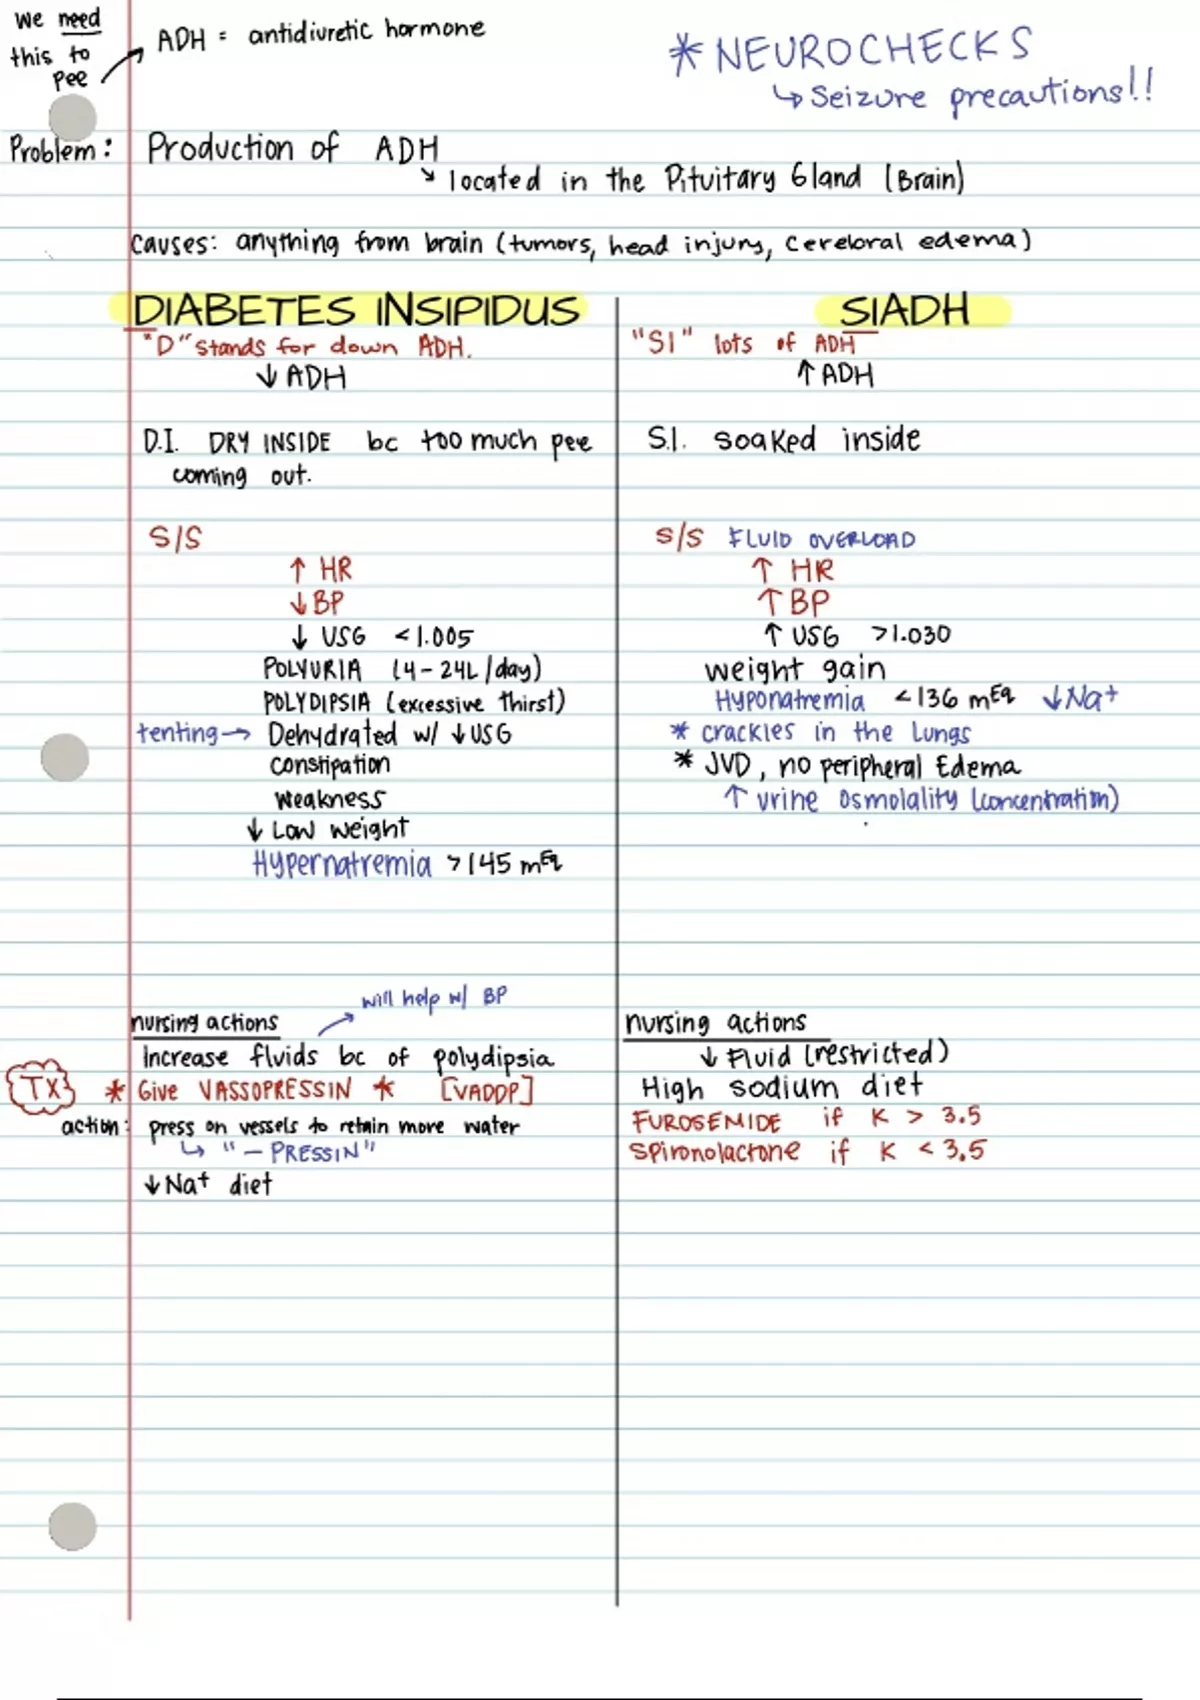 we need
this to
pee
ADH = antidiuretic hormone
* NEUROCHECKS
↳ Seizure precautions!!
Problem: Production of ADH
↘ located in the Pituitary Gland (Brain)
causes: anything from brain (tumors, head injury, cerebral edema)
DIABETES INSIPIDUS
"D" stands for down ADH.
↓ ADH
D.I. DRY INSIDE bc too much pee
coming out.
S/S
↑ HR
↓ BP
↓ USG <1.005
POLYURIA (4-24L/day)
POLYDIPSIA (excessive thirst)
tenting → Dehydrated w/ ↓ USG
constipation
weakness
↓ Low weight
Hypernatremia >145 mEq
will help w/ BP
nursing actions
Increase fluids bc of polydipsia
TX * Give VASSOPRESSIN * [VADDP]
action: press on vessels to retain more water
↳ "-PRESSIN"
↓ Na+ diet
SIADH
"SI" lots of ADH
↑ ADH
S.I. soaked inside
S/S FLUID OVERLOAD
↑ HR
↑ BP
↑ USG >1.030
weight gain
Hyponatremia <136 mEq ↓Na+
* crackles in the lungs
* JVD, no peripheral Edema
↑ urine osmolality (concentration)
nursing actions
↓ Fluid (restricted)
High sodium diet
FUROSEMIDE if K > 3.5
Spironolactone if K < 3.5